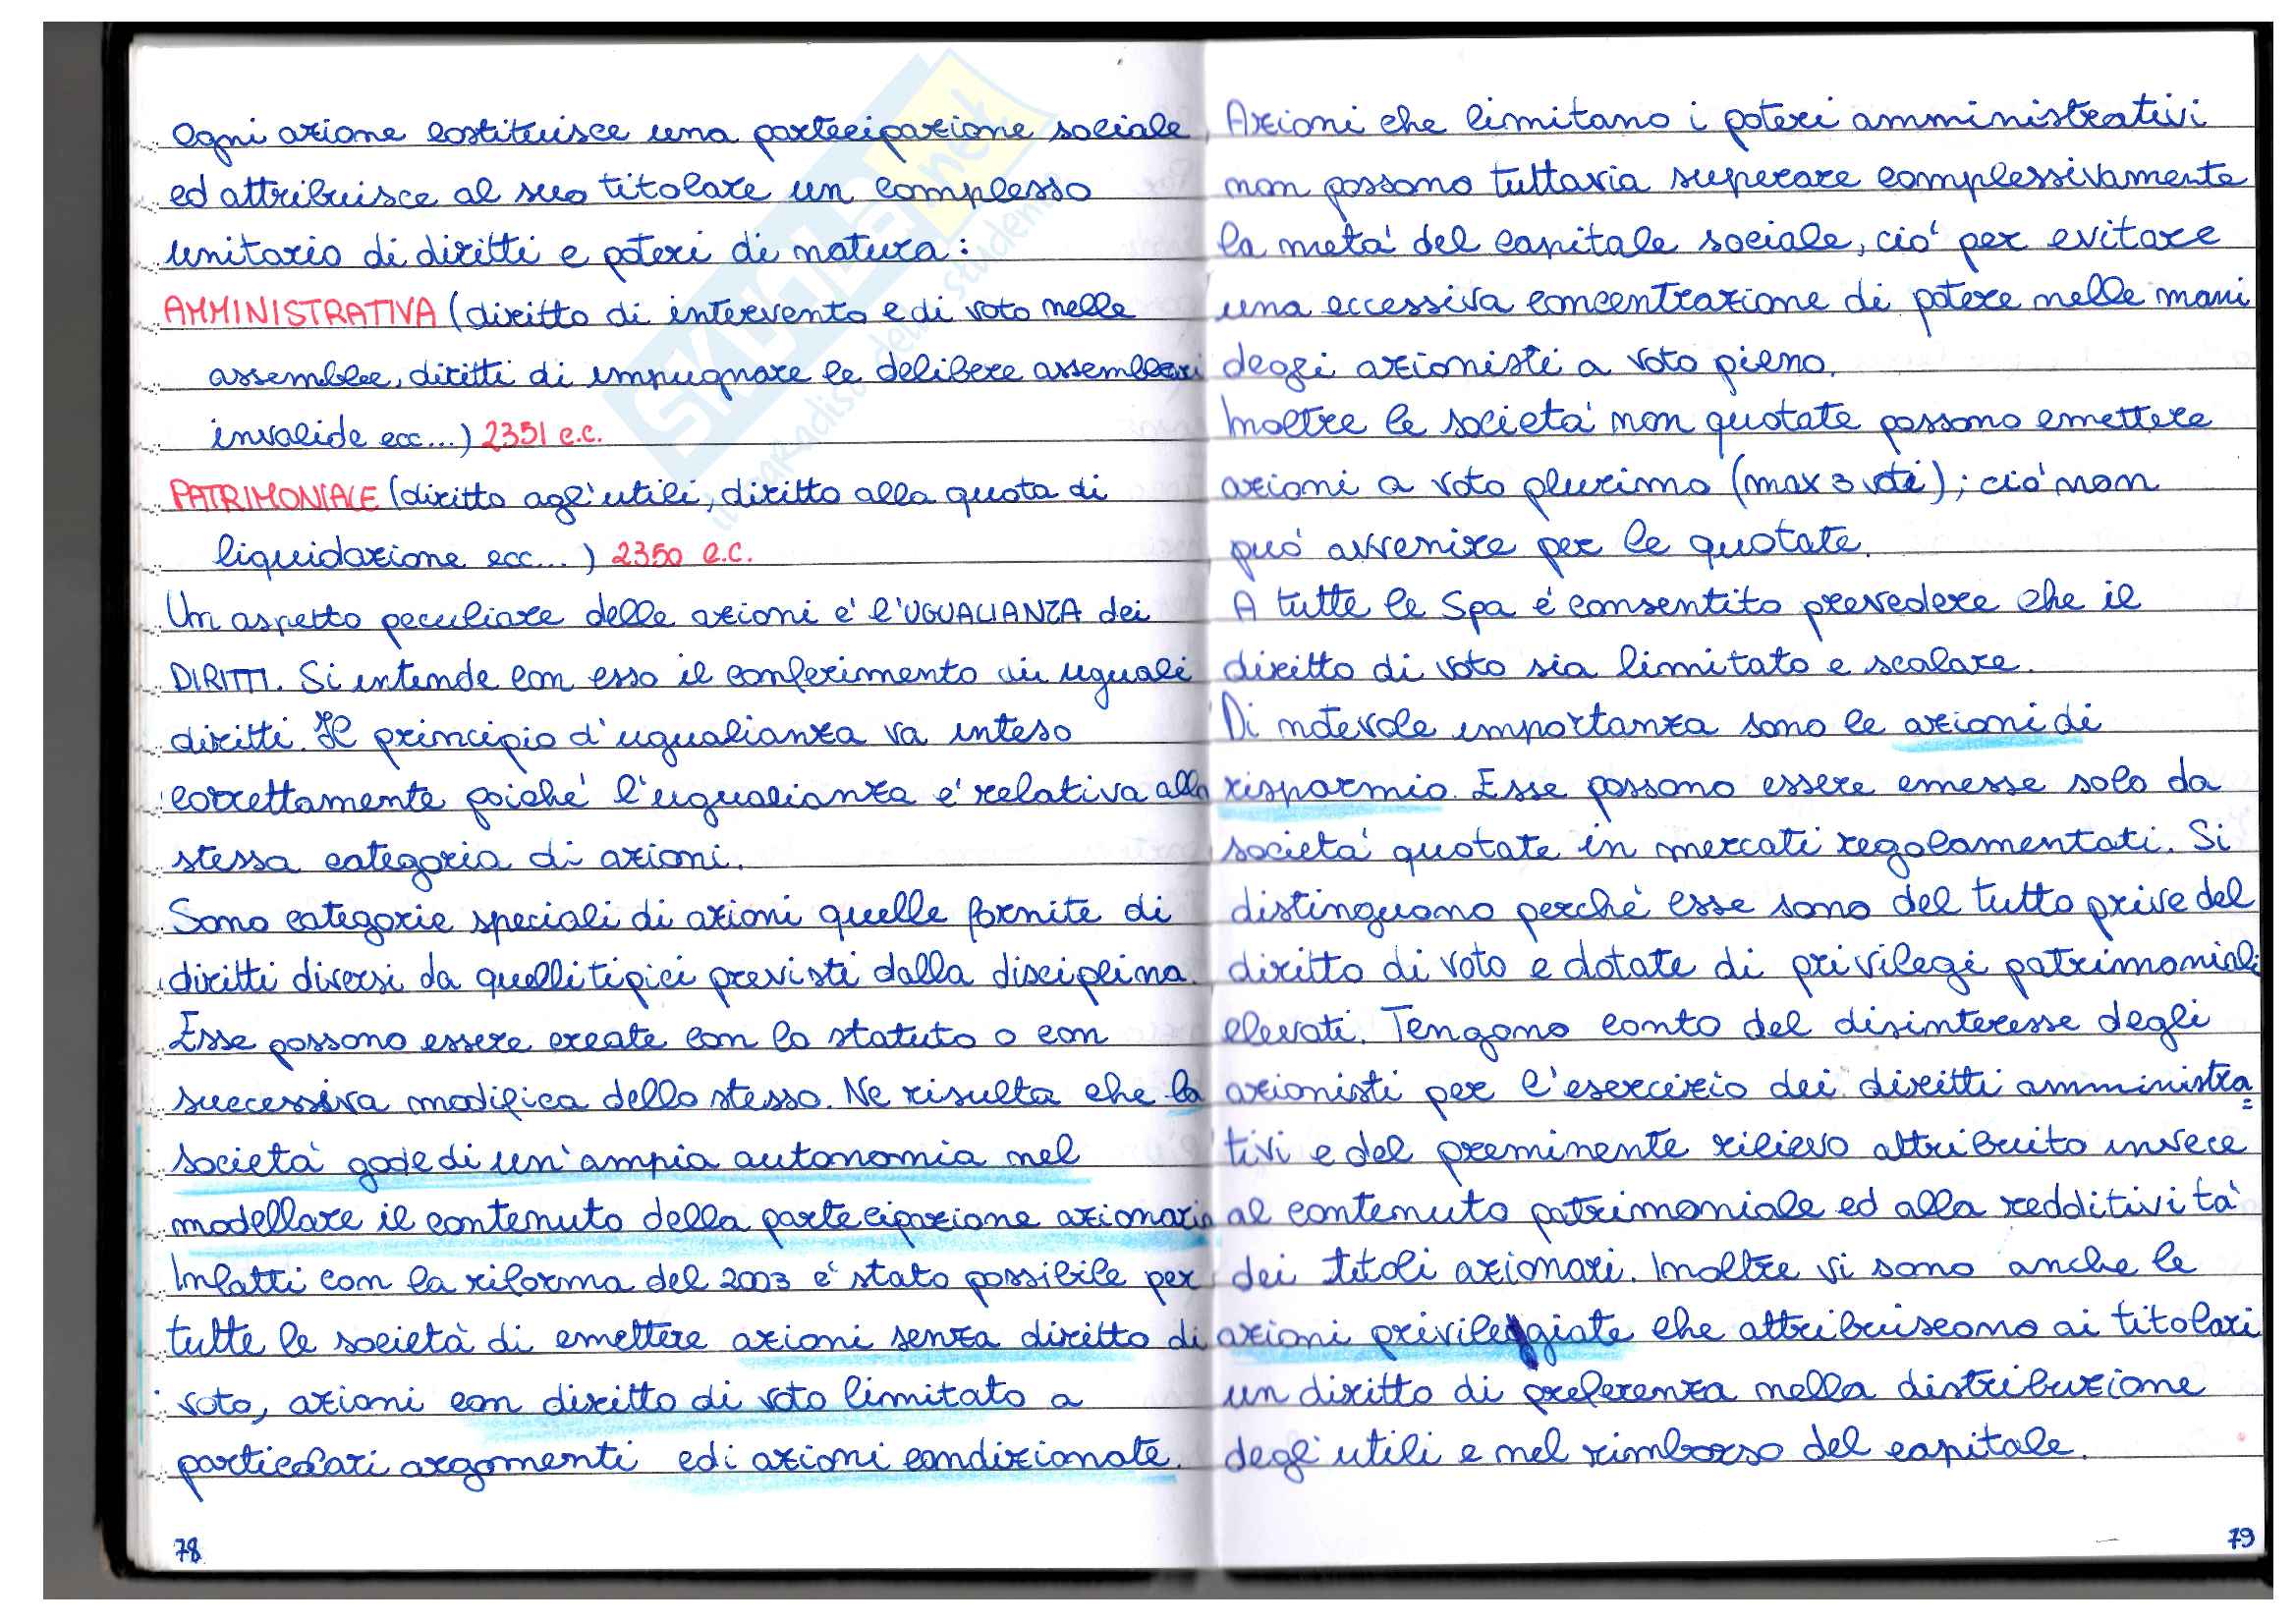 Ogni azione costituisce una partecipazione sociale
ed attribuisce al suo titolare un complesso
unitario di diritti e poteri di natura:
AMMINISTRATIVA (diritto di intervento e di voto nelle
assemblee, diritti di impugnare le delibere assembleari
invalide ecc...) 2351 c.c.
PATRIMONIALE (diritto agl'utili, diritto alla quota di
liquidazione ecc...) 2350 c.c.
Un aspetto peculiare delle azioni e' l'UGUALIANZA dei
DIRITTI. Si intende con esso il conferimento di uguali
diritti. Il principio d'ugualianza va inteso
correttamente poiche' l'ugualianza e' relativa alla
stessa categoria di azioni.
Sono categorie speciali di azioni quelle fornite di
diritti diversi da quelli tipici previsti dalla disciplina.
Esse possono essere create con lo statuto o con
successiva modifica dello stesso. Ne risulta che la
società gode di un'ampia autonomia nel
modellare il contenuto della partecipazione azionaria
Infatti con la riforma del 2003 e' stato possibile per
tutte le società di emettere azioni senza diritto di
voto, azioni con diritto di voto limitato a
particolari argomenti ed i azioni condizionate.
78
Azioni che limitano i poteri amministrativi
non possono tuttavia superare complessivamente
la meta' del capitale sociale, cio' per evitare
una eccessiva concentrazione di potere nelle mani
degli azionisti a voto pieno.
Inoltre le societa' non quotate possono emettere
azioni a voto plurimo (max 3 voti); cio' non
puo' avvenire per le quotate.
A tutte le Spa e' consentito prevedere che il
diritto di voto sia limitato e scalare.
Di notevole importanza sono le azioni di
risparmio. Esse possono essere emesse solo da
societa' quotate in mercati regolamentati. Si
distinguono perche' esse sono del tutto prive del
diritto di voto e dotate di privilegi patrimoniali
elevati. Tengono conto del disinteresse degli
azionisti per l'esercizio dei diritti amministra=
tivi e del preminente rilievo attribuito invece
al contenuto patrimoniale ed alla redditivita'
dei titoli azionari. Inoltre vi sono anche le
azioni privilegiate che attribuiscono ai titolari
un diritto di preferenza nella distribuzione
degl'utili e nel rimborso del capitale.
79
SKUOLA.net